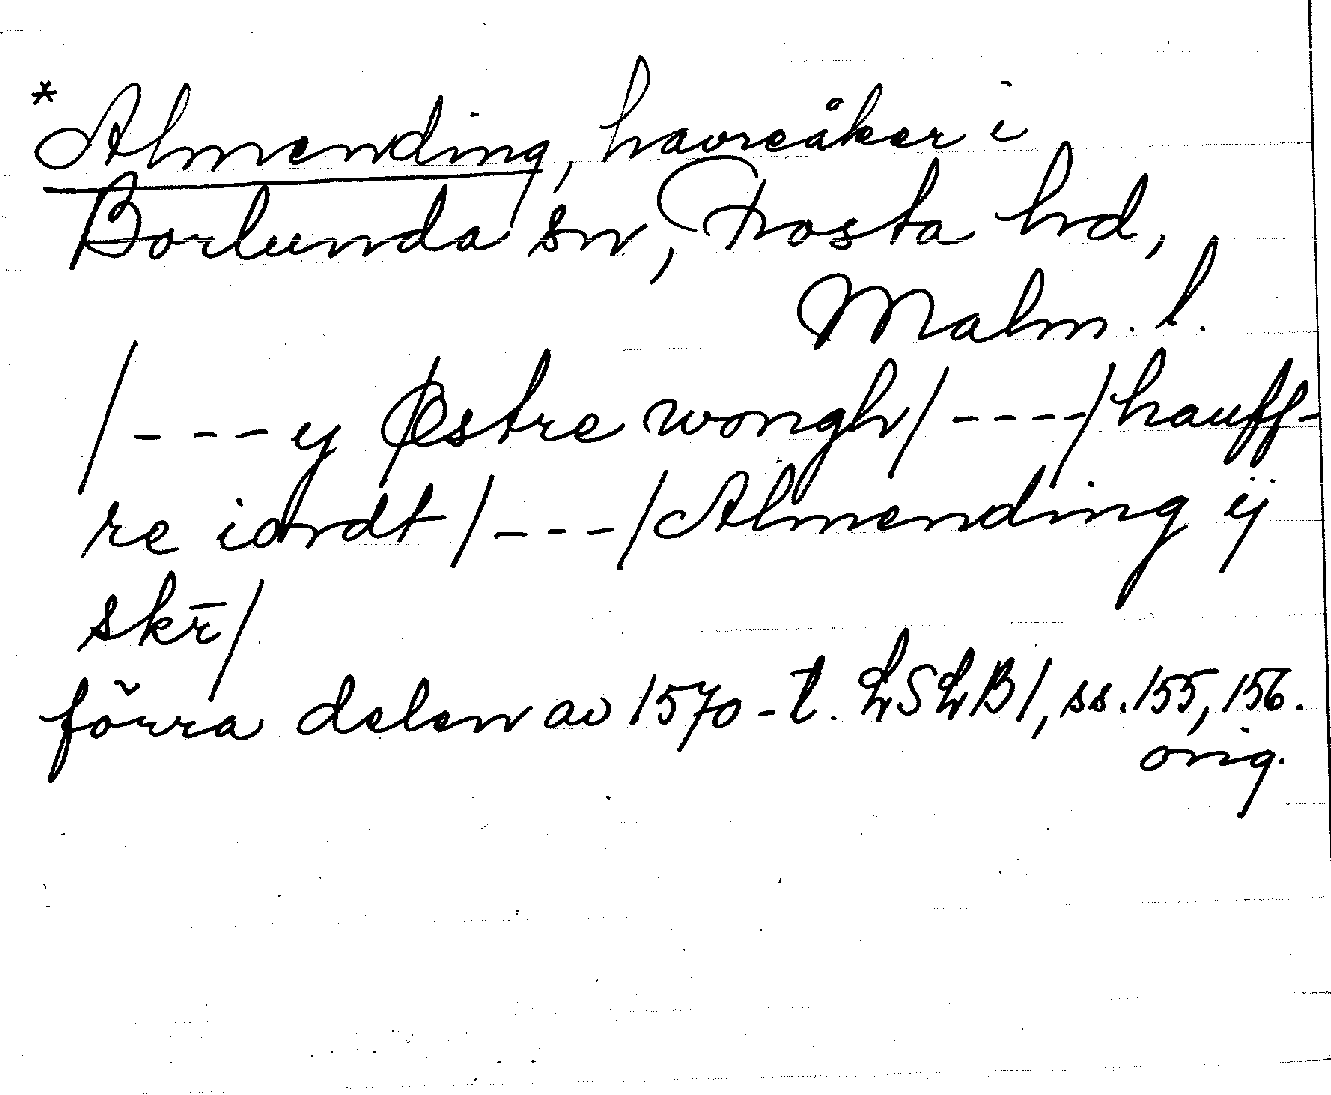 *Almending, havreåker i
Borlunda sn, Frosta hd,
Malm. l.
/---y Østre wongh/----/hauff-
re iordt/---/Almending ij
skr̄/
förra delen av 1570-t. LSLB1, ss. 155, 156.
orig.